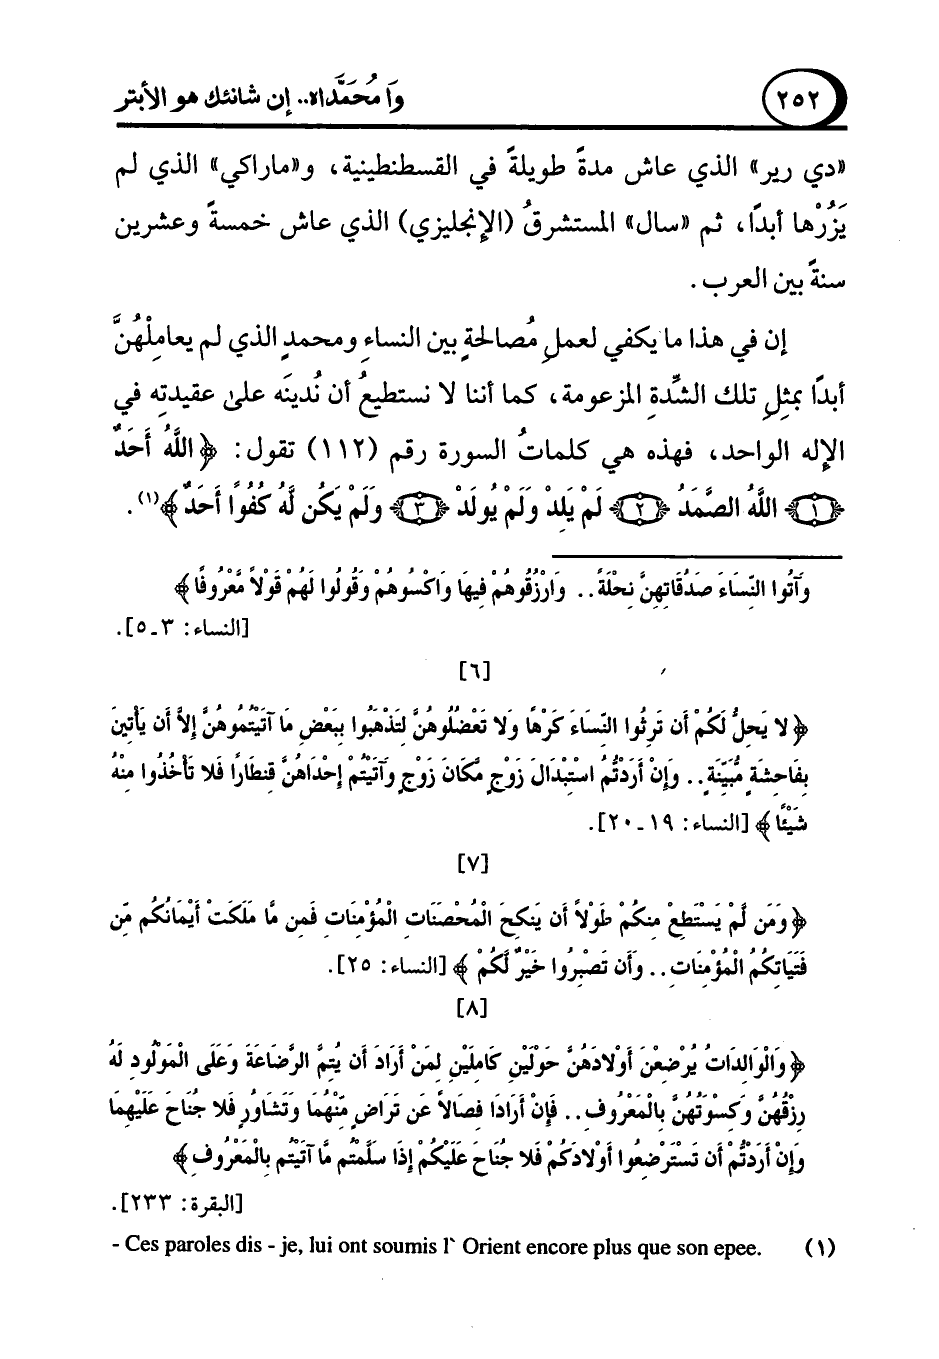 وَا مُحَمَّدَاه.. إن شانئك هو الأبتر
٢٥٢
«دي رير» الذي عاش مدةً طويلةً في القسطنطينية، و«ماراكي» الذي لم
يَزُرْها أبدًا، ثم «سال» المستشرقُ (الإنجليزي) الذي عاش خمسةً وعشرين
سنةً بين العرب.
إن في هذا ما يكفي لعملِ مُصالحةٍ بين النساءِ ومحمدٍ الذي لم يعاملْهُنَّ
أبدًا بمثلِ تلك الشِّدةِ المزعومة، كما أننا لا نستطيعُ أن نُدينَه على عقيدتِه في
الإله الواحد، فهذه هي كلماتُ السورة رقم (١١٢) تقول: ﴿اللَّهُ أَحَدٌ
﴿١﴾ اللَّهُ الصَّمَدُ ﴿٢﴾ لَمْ يَلِدْ وَلَمْ يُولَدْ ﴿٣﴾ وَلَمْ يَكُن لَّهُ كُفُوًا أَحَدٌ﴾(١).
وَآتُوا النِّسَاءَ صَدُقَاتِهِنَّ نِحْلَةً.. وَارْزُقُوهُمْ فِيهَا وَاكْسُوهُمْ وَقُولُوا لَهُمْ قَوْلاً مَّعْرُوفًا﴾
[النساء: ٣ـ٥].
[٦]
﴿لا يَحِلُّ لَكُمْ أَن تَرِثُوا النِّسَاءَ كَرْهًا وَلا تَعْضُلُوهُنَّ لِتَذْهَبُوا بِبَعْضِ مَا آتَيْتُمُوهُنَّ إِلاَّ أَن يَأْتِينَ
بِفَاحِشَةٍ مُّبَيِّنَةٍ.. وَإِنْ أَرَدتُّمُ اسْتِبْدَالَ زَوْجٍ مَّكَانَ زَوْجٍ وَآتَيْتُمْ إِحْدَاهُنَّ قِنطَارًا فَلا تَأْخُذُوا مِنْهُ
شَيْئًا﴾ [النساء: ١٩ـ٢٠].
[٧]
﴿وَمَن لَّمْ يَسْتَطِعْ مِنكُمْ طَوْلاً أَن يَنكِحَ الْمُحْصَنَاتِ الْمُؤْمِنَاتِ فَمِن مَّا مَلَكَتْ أَيْمَانُكُم مِّن
فَتَيَاتِكُمُ الْمُؤْمِنَاتِ.. وَأَن تَصْبِرُوا خَيْرٌ لَّكُمْ﴾ [النساء: ٢٥].
[٨]
﴿وَالْوَالِدَاتُ يُرْضِعْنَ أَوْلادَهُنَّ حَوْلَيْنِ كَامِلَيْنِ لِمَنْ أَرَادَ أَن يُتِمَّ الرَّضَاعَةَ وَعَلَى الْمَوْلُودِ لَهُ
رِزْقُهُنَّ وَكِسْوَتُهُنَّ بِالْمَعْرُوفِ.. فَإِنْ أَرَادَا فِصَالاً عَن تَرَاضٍ مِّنْهُمَا وَتَشَاوُرٍ فَلا جُنَاحَ عَلَيْهِمَا
وَإِنْ أَرَدْتُّمْ أَن تَسْتَرْضِعُوا أَوْلادَكُمْ فَلا جُنَاحَ عَلَيْكُمْ إِذَا سَلَّمْتُم مَّا آتَيْتُم بِالْمَعْرُوفِ﴾
[البقرة: ٢٣٣].
(١) - Ces paroles dis - je, lui ont soumis l` Orient encore plus que son epee.